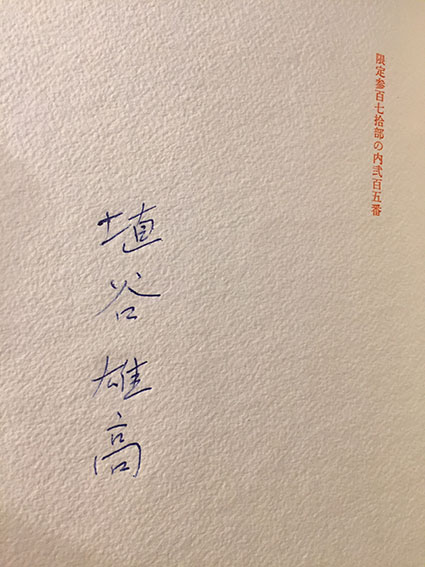 限定参百七拾部の内弐百五番
埴谷雄高